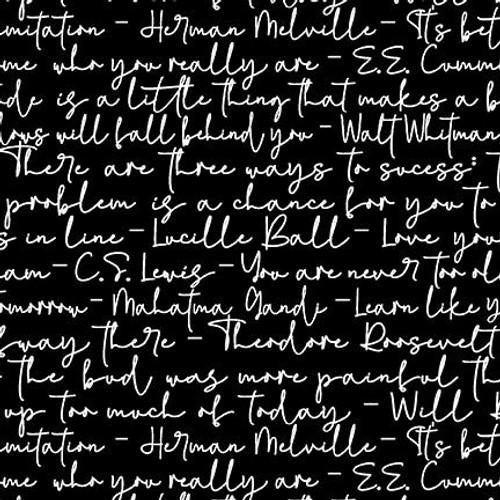 imitation – Herman Melville – It's bet
ome who you really are – E.E. Cumm
de is a little thing that makes a b
dows will fall behind you – Walt Whitman
There are three ways to sucess: T
problem is a chance for you to
s in line – Lucille Ball – Love you
am – C.S. Lewis – You are never too ol
omorrow – Mahatma Gandi – Learn like y
fway there – Theodore Roosevelt
the bud was more painful th
up too much of today – Will R
imitation – Herman Melville – It's bet
ome who you really are – E.E. Cumm